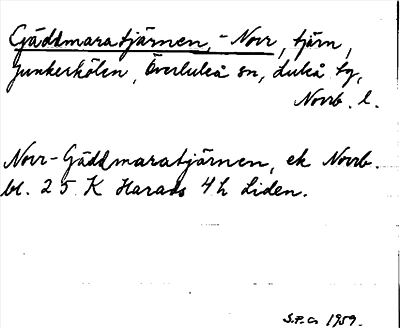 Gäddmaratjärnen, - Norr, tjärn,
Junkerhölen, Överluleå sn, Luleå tg,
Norrb. l.
Norr-Gäddmaratjärnen, ek Norrb.
bl. 25 K Harads 4 h Liden.
S.P.G 1959.